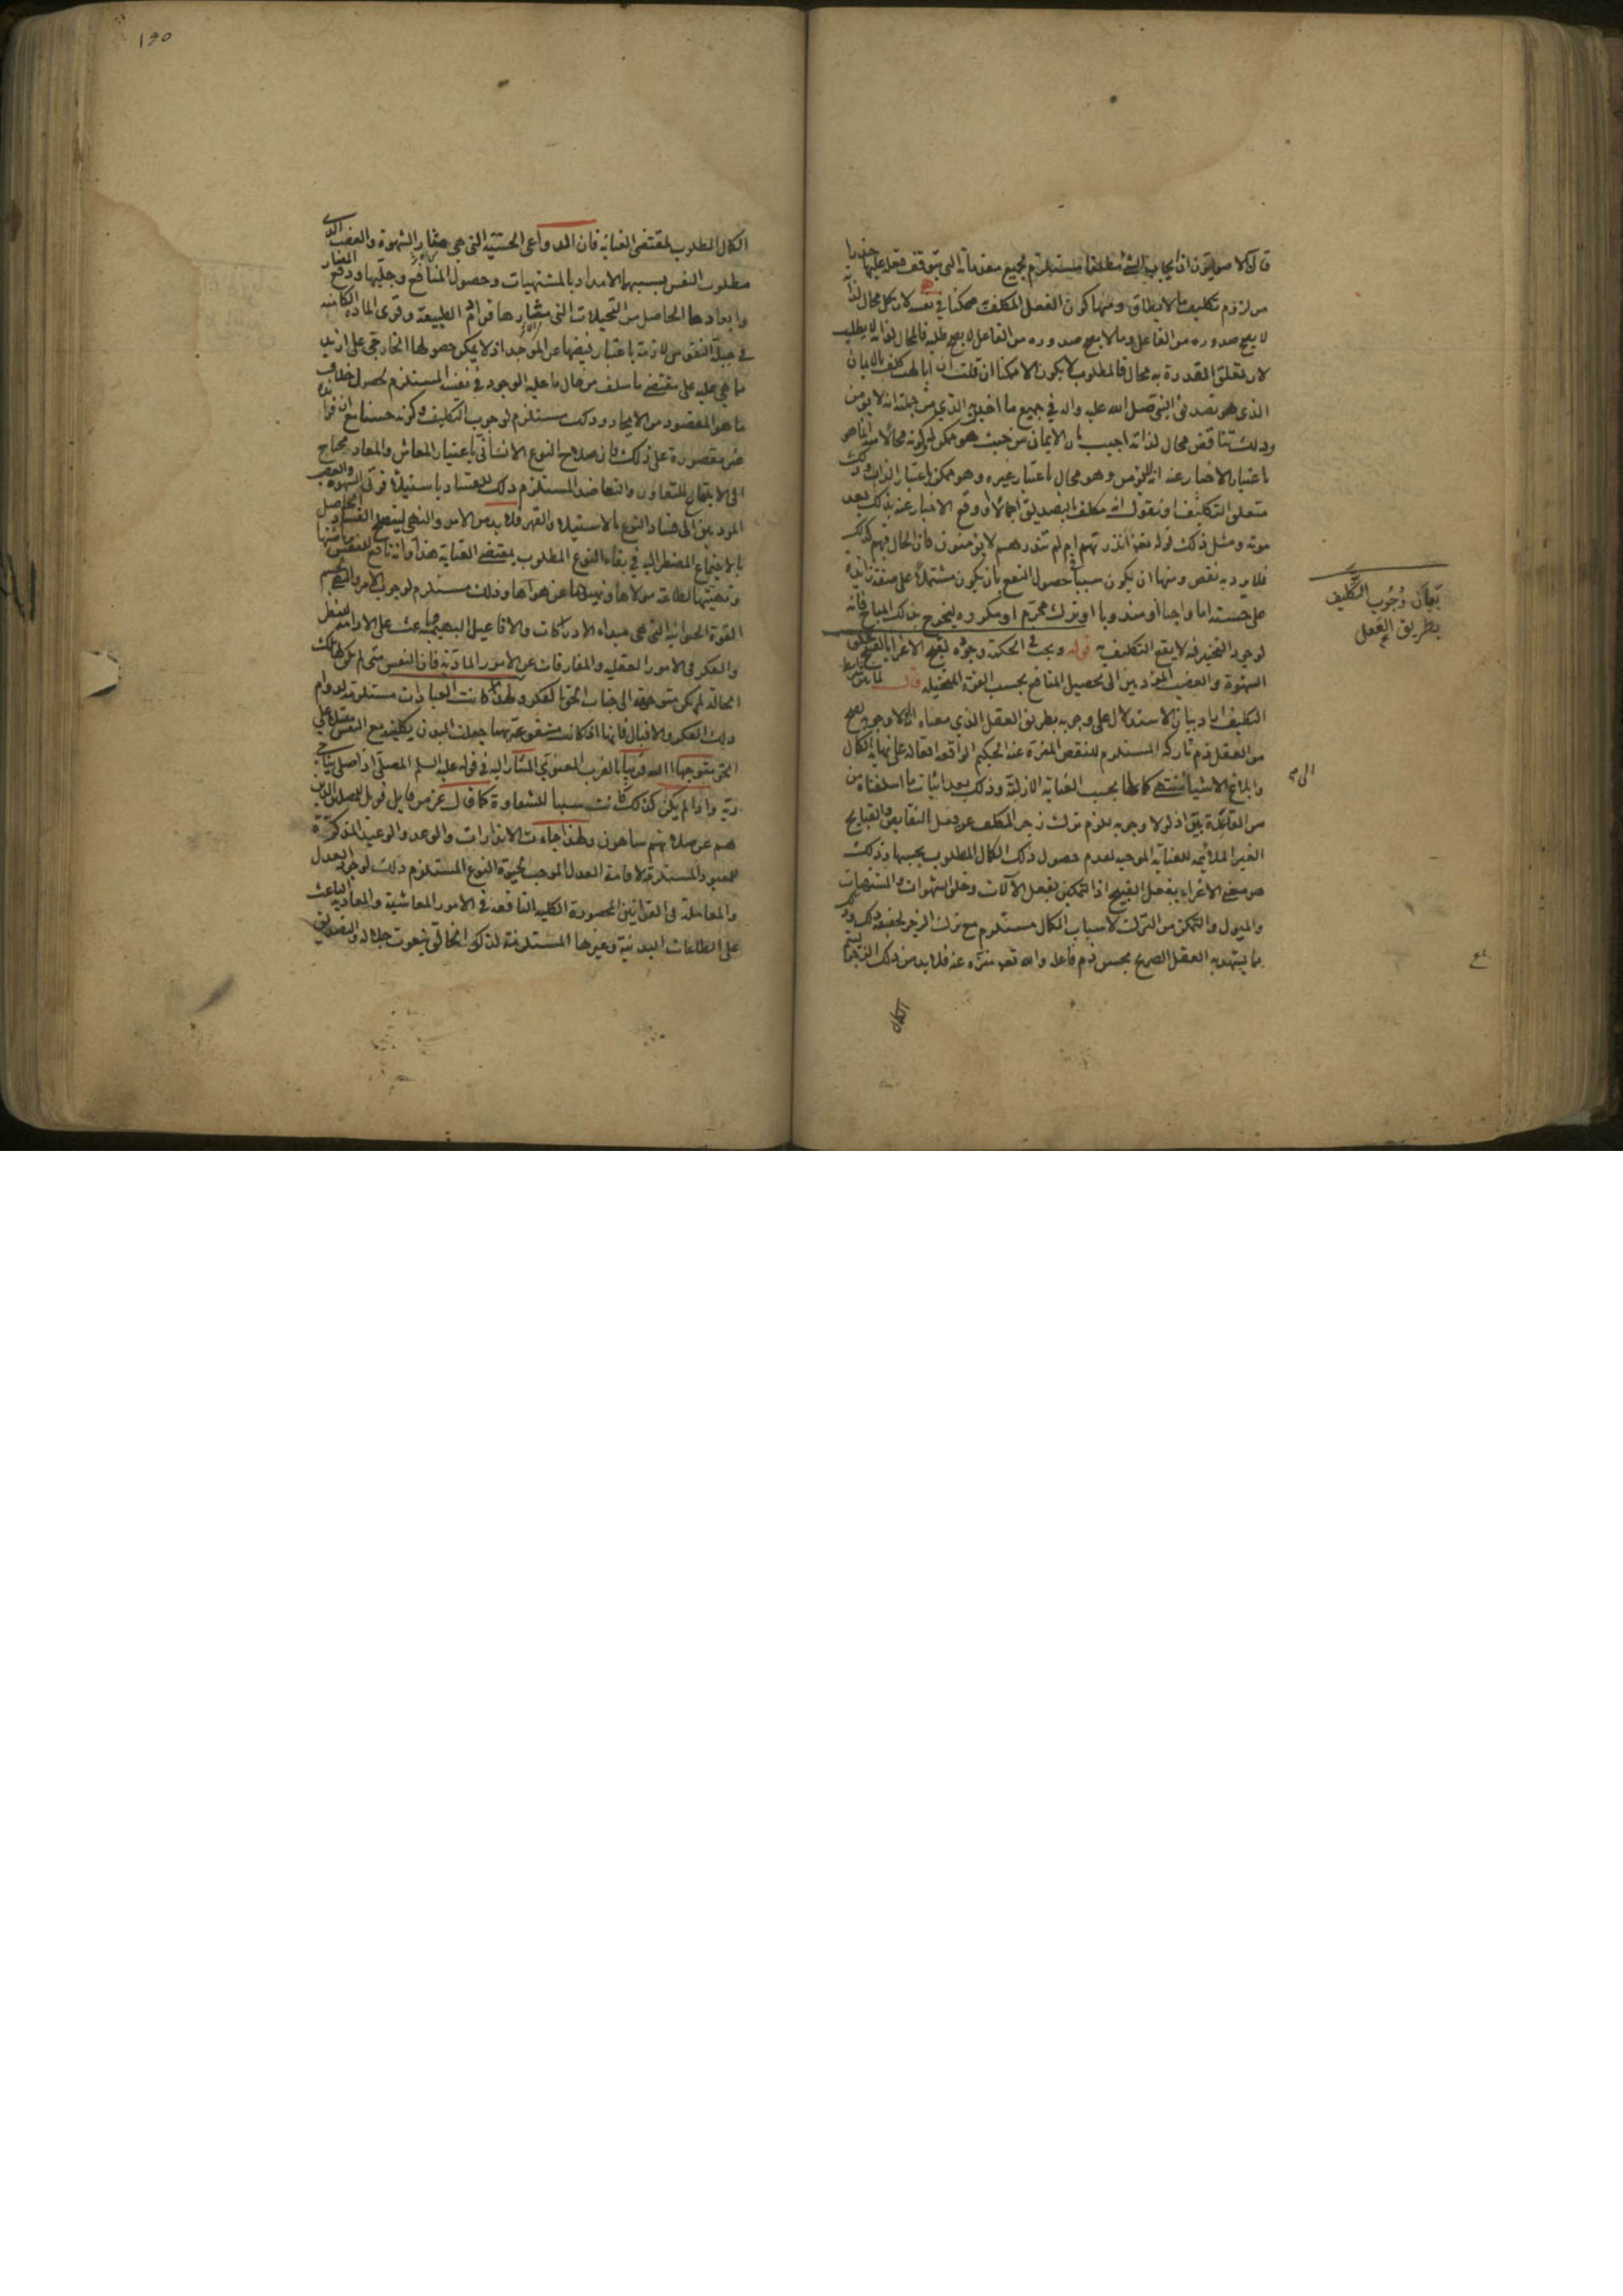 قال الاصوليون ان ايجاب الشئ مطلقا مستلزم لجميع مقدماته التى يتوقف فعله عليها
من لزوم تكليف ما لا يطاق ومنها كون الفعل المكلف به ممكنا فى نفسه لان كل محال لذاته
لا يصح صدوره من الفاعل وما لا يصح صدوره من الفاعل لا يصح طلبه فالمحال لذاته لا يطلب
لان تعلق القدرة به محال فالمطلوب لا يكون الا ممكنا ان قلت ان ابا لهب كلف بالايمان
الذى هو تصديق النبى صلى الله عليه واله فى جميع ما اخبر به الذى من جملته انه لا يؤمن
وذلك تناقض محال لذاته اجيب بان الايمان من حيث هو ممكن لكونه محالا انما هو
باعتبار الاخبار عنه انه لا يؤمن وهو محال باعتبار غيره وهو ممكن باعتبار الذات وذلك
متعلق التكليف او نقول انه مكلف بالتصديق اجمالا او وقع الاخبار عنه بذلك بعد
موته ومثل ذلك قوله تعالى أانذرتهم ام لم تنذرهم لا يؤمنون فان الحال فيهم كذلك
فلا يرد به نقص ومنها ان يكون سببا لحصول النفع بان يكون مشتملا على صفة زايدة
على حسنه اما واجبا او مندوبا او ترك محرم او مكروه ليخرج بذلك المباح فانه
لوجود التخيير فيه لا يقع التكليف به قوله ويجب فى الحكمة وجوبه لقبح الاغراء بالقبيح
الشهوة والغضب المؤديين الى تحصيل المنافع بحسب القوة المتخيلة قال
التكليف اراد بيان الاستدلال على وجوبه بطريق العقل الذى معناه
من العقل ذم تاركه المستلزم للنقص المنزه عنه الحكيم لواقعه افعاله على نهاية الكمال
وابلاغ الاشياء منتهى كمالها بحسب العناية الازلية وذلك بعد اثبات ما اسلفناه من
من القاعدة اذ لولا وجوبه للزم ترك زجر المكلف عن فعل النقايص والقبايح
الغير الملائمة للعناية الموجبة لعدم حصول ذلك الكمال المطلوب بحسبها وذلك
هو معنى الاغراء بفعل القبيح اذ التمكين بفعل الآلات وخلق الشهوات والمشتهيات
والميول والتمكن من الترك لاسباب الكمال مستلزم مع ترك الزجر
مما يشهد به العقل الصريح بحسن ذم فاعله والله تعالى منزه عنه فلا بد من ذلك الزجر
الكمال
بيان وجوب التكليف
بطريق العقل
١٩٥
الكمال المطلوب بمقتضى العناية فان الدواعى الحسية التى هى مثار الشهوة والغضب
مطلوب النفس بسببها الامداد بالمشتهيات وحصول المنافع وجلبها ودفع المضار
وابعادها الحاصل من التخيلات التى مثارها قوام الطبيعة وقوى المادة الكامنة
فى جبلة النفوس لازمة باعتبار فيضها عن الموجد اذ لا يمكن حصولها الخارجى على ازيد
ما هى عليه على مقتضى ما سلف من حال ماهية الوجود فى نفسه المستلزم لحصول خلاف
ما هو المقصود من الايجاد وذلك مستلزم لوجوب التكليف وكونه حسنا
غير مقصورة على ذلك فان صلاح النوع الانسانى باعتبار المعاش والمعاد محتاج
الى الاجتماع للتعاون والتعاضد المستلزم ذلك للفساد باستيلاء قوتى الشهوة والغضب
المؤديين الى فساد النوع بالاستيلاء والقهر فلا بد من الامر والنهى ليندفع الفساد الحاصل
بالاجتماع المضطر اليه فى بقاء النوع المطلوب بمقتضى العناية هذا وانه نافع للنفس
وتهيئتها لطاعة مولاها ونهيها عن هواها وذلك مستلزم لوجوب الامر والنهى
القوة الحيوانية التى هى مبداء الادراكات والافاعيل البهيمية باعث على الادامة للنظر
والفكر فى الامور العقلية والمفارقات عن الامور المادية فان النفس متى لم يكن
الحالة لم يكن متوجهة الى جناب الحق بالفكر ولهذا كانت العبادات مستلزمة لدوام
ذلك الفكر والاقبال فانها اذا كانت مشفوعة بهما جعلت البدن بكليته مع النفس مقبلا على
الحق متوجها الى الله قريبا بالقرب المعنوى المشار اليه فى قوله عليه السلم المصلى اذا صلى يناجى
ربه واذا لم يكن كذلك كانت سببا للشقاوة كما قال عز من قايل فويل للمصلين الذين
هم عن صلاتهم ساهون ولهذا جاءت الانذارات والوعد والوعيد المذكرة
للمعبود المستلزمة لاقامة العدل الموجب لحيوة النوع المستلزم ذلك لوجود العدل
والمعاملة فى القوانين المحصورة الكلية النافعة فى الامور المعاشية والمعادية الباعث
على الطاعات البدنية وغيرها المستلزمة لذكر الخالق بنعوت جلاله والتصديق